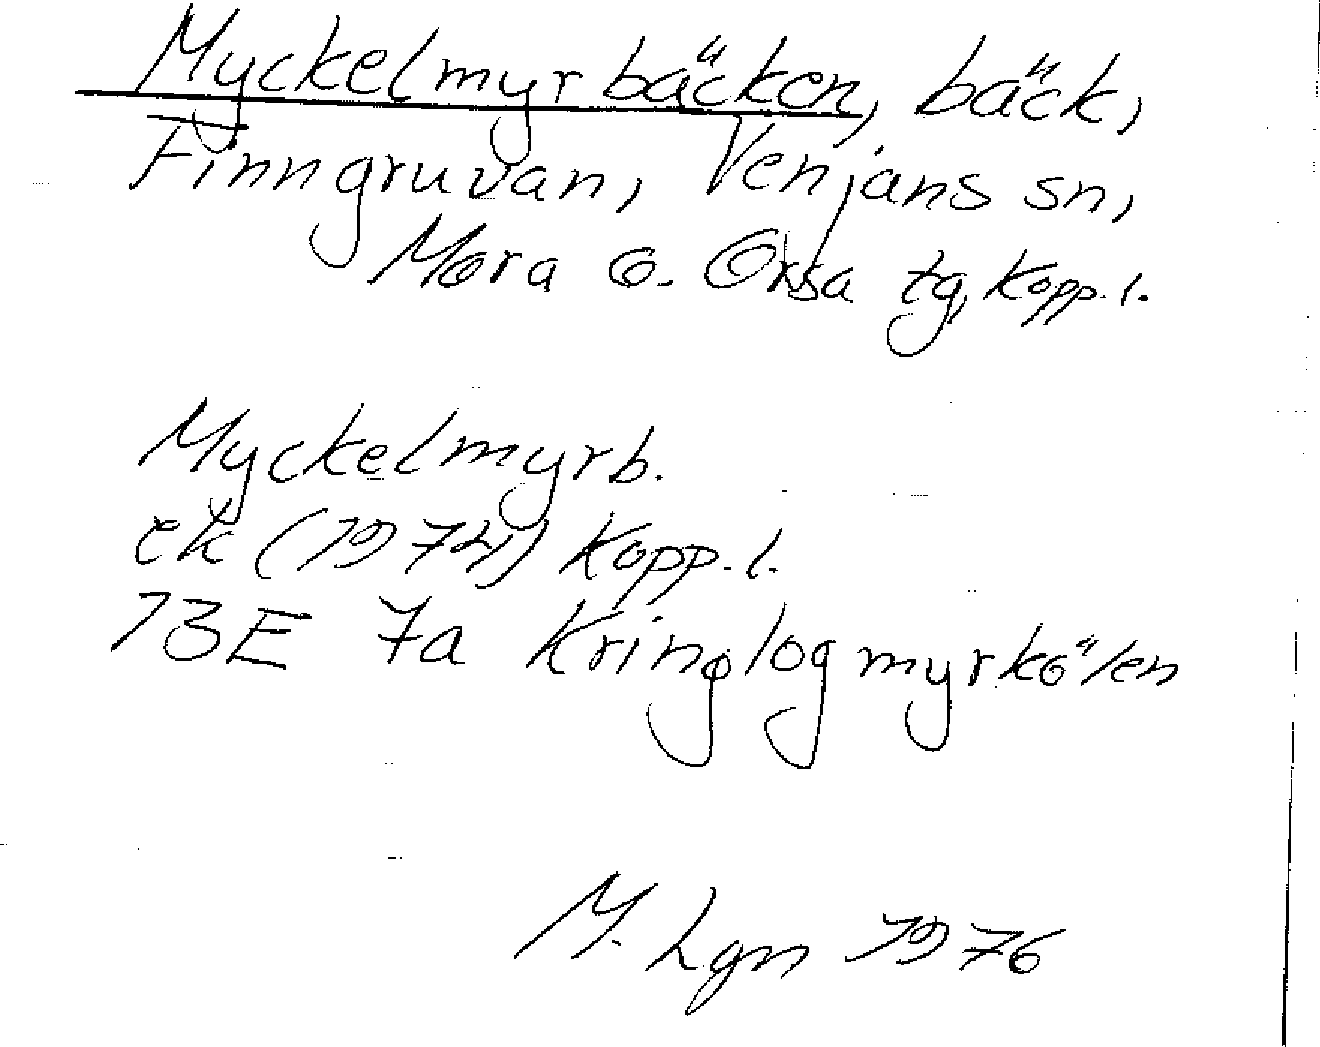 Myckelmyrbäcken, bäck,
Finngruvan, Venjans sn,
Mora o. Orsa tg, Kopp. l.
Myckelmyrb.
ek (1974) Kopp. l.
13E 7a Kringlogmyrkölen
M. Lgn 1976